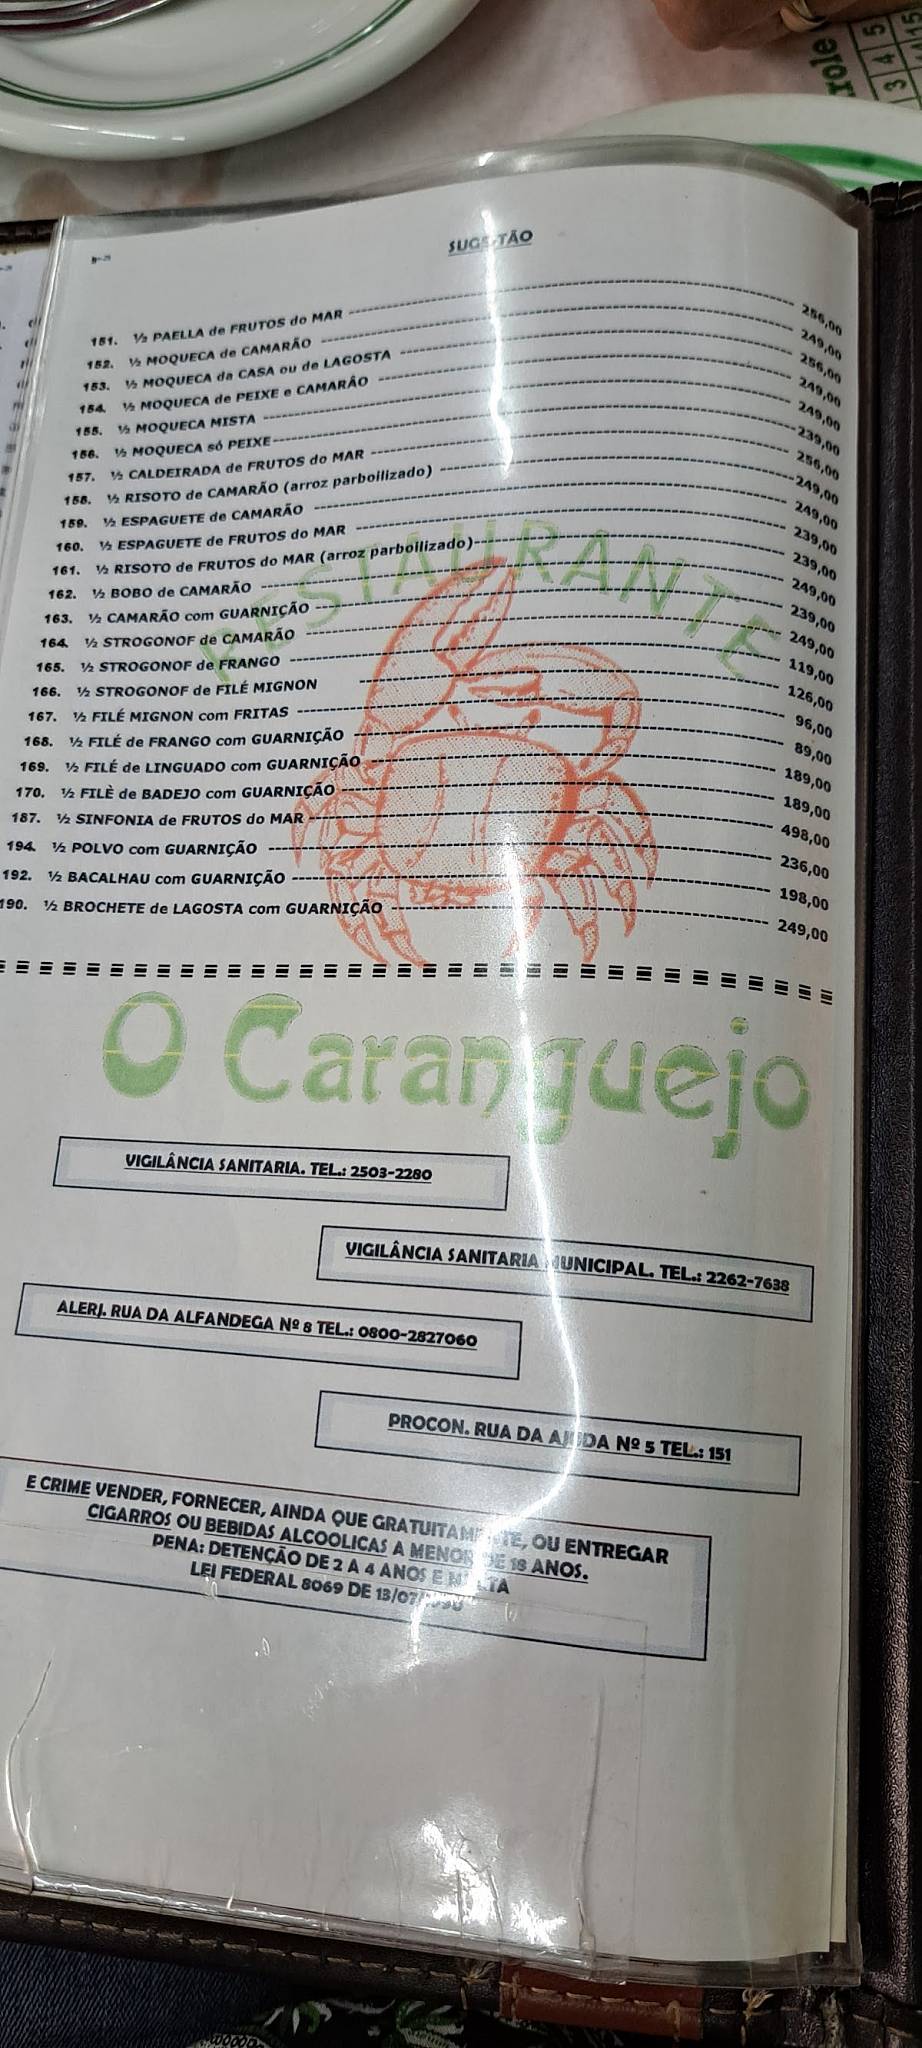 SUGESTÃO
151. ½ PAELLA de FRUTOS do MAR 256,00
152. ½ MOQUECA de CAMARÃO 249,00
153. ½ MOQUECA da CASA ou de LAGOSTA 256,00
154. ½ MOQUECA de PEIXE e CAMARÃO 249,00
155. ½ MOQUECA MISTA 249,00
156. ½ MOQUECA só PEIXE 239,00
157. ½ CALDEIRADA de FRUTOS do MAR 256,00
158. ½ RISOTO de CAMARÃO (arroz parboilizado) 249,00
159. ½ ESPAGUETE de CAMARÃO 249,00
160. ½ ESPAGUETE de FRUTOS do MAR 239,00
161. ½ RISOTO de FRUTOS do MAR (arroz parboilizado) 239,00
162. ½ BOBO de CAMARÃO 249,00
163. ½ CAMARÃO com GUARNIÇÃO 239,00
164. ½ STROGONOF de CAMARÃO 249,00
165. ½ STROGONOF de FRANGO 119,00
166. ½ STROGONOF de FILÉ MIGNON 126,00
167. ½ FILÉ MIGNON com FRITAS 96,00
168. ½ FILÉ de FRANGO com GUARNIÇÃO 89,00
169. ½ FILÉ de LINGUADO com GUARNIÇÃO 189,00
170. ½ FILÈ de BADEJO com GUARNIÇÃO 189,00
187. ½ SINFONIA de FRUTOS do MAR 498,00
194. ½ POLVO com GUARNIÇÃO 236,00
192. ½ BACALHAU com GUARNIÇÃO 198,00
190. ½ BROCHETE de LAGOSTA com GUARNIÇÃO 249,00
RESTAURANTE
O Caranguejo
VIGILÂNCIA SANITARIA. TEL.: 2503-2280
VIGILÂNCIA SANITARIA MUNICIPAL. TEL.: 2262-7638
ALERJ. RUA DA ALFANDEGA Nº 8 TEL.: 0800-2827060
PROCON. RUA DA AJUDA Nº 5 TEL.: 151
E CRIME VENDER, FORNECER, AINDA QUE GRATUITAMENTE, OU ENTREGAR
CIGARROS OU BEBIDAS ALCOOLICAS A MENOR DE 18 ANOS.
PENA: DETENÇÃO DE 2 A 4 ANOS E MULTA
LEI FEDERAL 8069 DE 13/07/1990